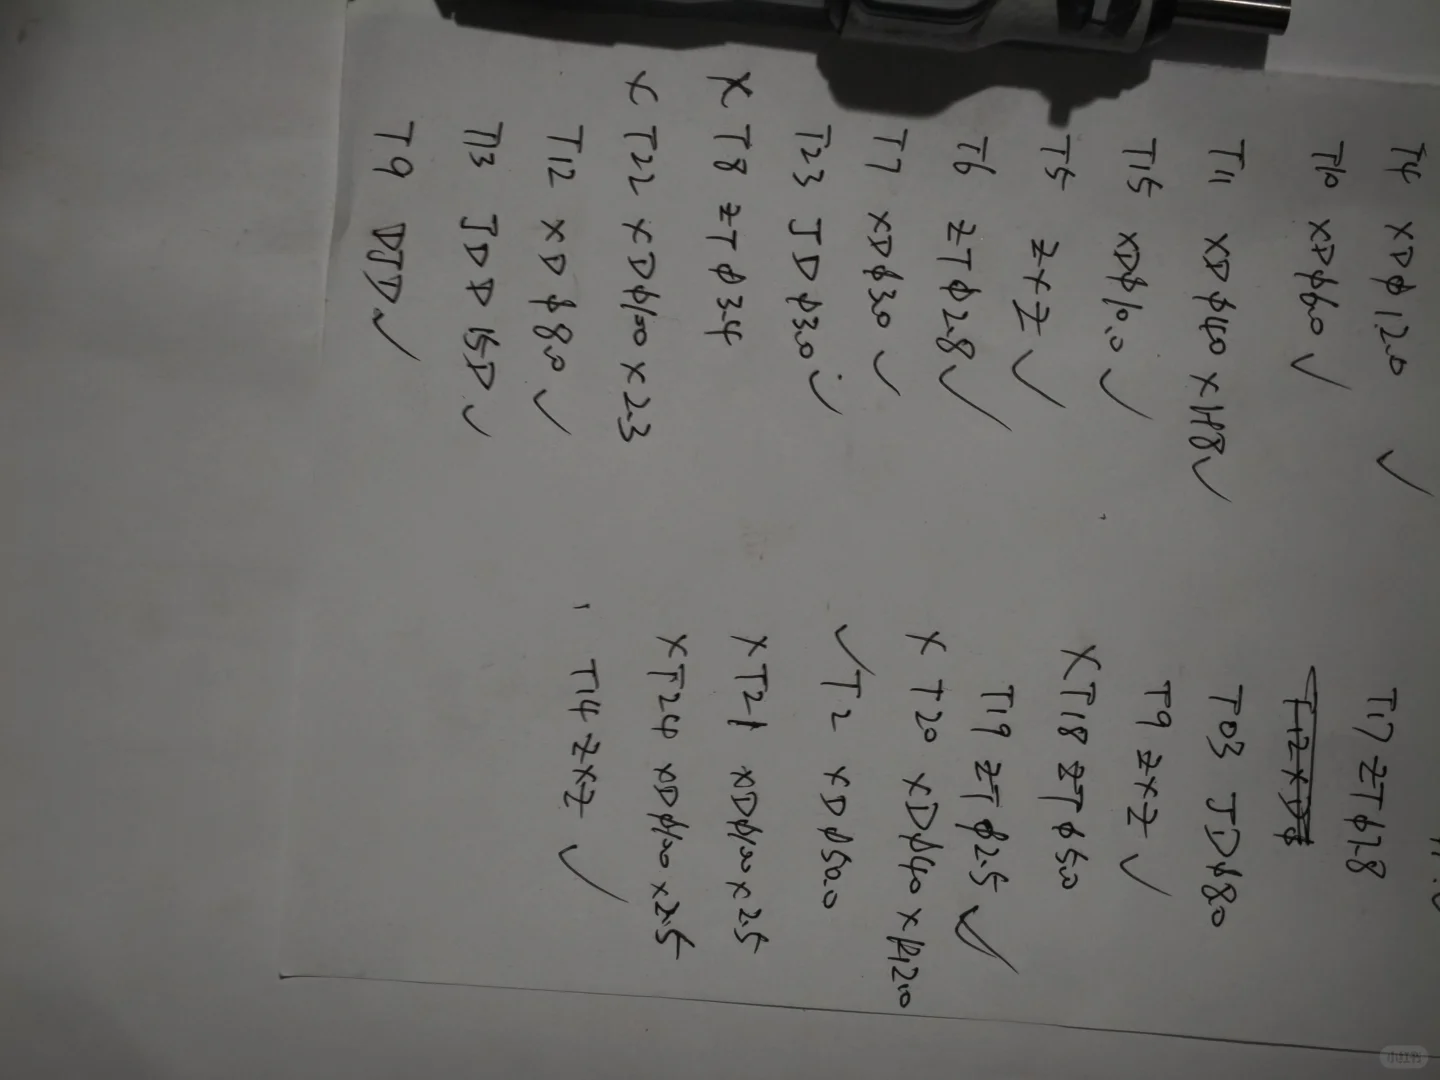 T4 XD φ12.0 ✓
T10 XD φ6.0 ✓
T11 XD φ4.0 × H8 ✓
T15 XD φ10.0 ✓
T5 ZXZ ✓
T6 ZT φ2.8 ✓
T7 XD φ3.0 ✓
T23 JD φ3.0 ✓
× T8 ZT φ3.4
× T22 XD φ10.0 × 2.3
T12 XD φ8.0 ✓
T13 JDD 15D ✓
T9 DJD ✓
T17 ZT φ7.8
T03 JD φ8.0
T9 ZXZ ✓
× T18 ZT φ5.0
T19 ZT φ2.5 ✓
× T20 XD φ4.0 × R12.0
✓ T2 XD φ50.0
× T21 XD φ10.0 × 2.5
× T24 XD φ10.0 × 2.5
T14 ZXZ ✓
小红书